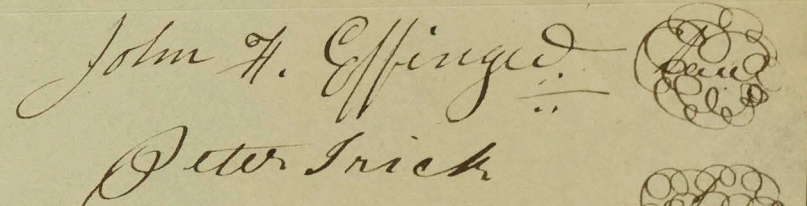 John H. Effinger seal
Peter Trick